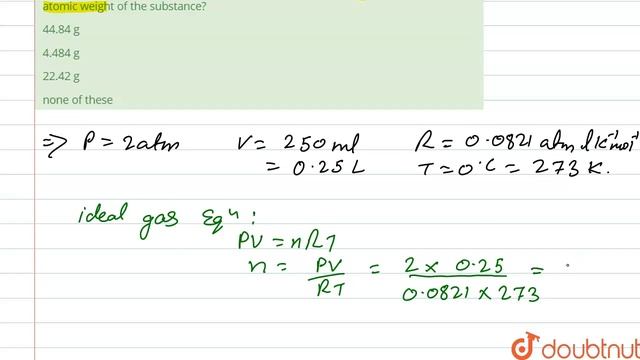 atomic weight of the substance?
44.84 g
4.484 g
22.42 g
none of these
=> P = 2 atm V = 250 ml R = 0.0821 atm l K⁻¹ mol⁻¹
= 0.25 L T = 0°C = 273 K.
ideal gas Eqⁿ :
PV = nRT
n = PV/RT = 2 × 0.25 / 0.0821 × 273 =
doubtnut